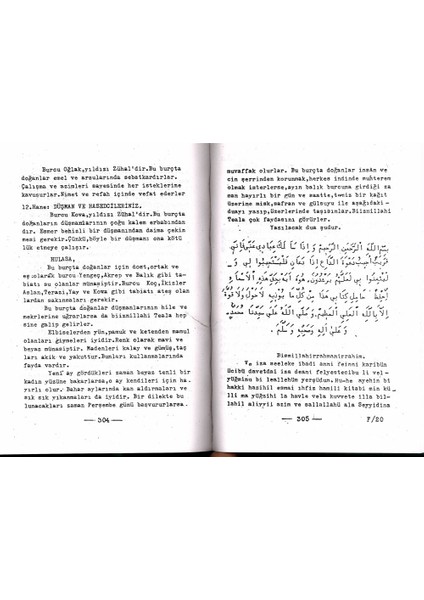 Burcu Oğlak,yıldızı Zühal'dir.Bu burçta
doğanlar emel ve arzularında sebatkardırlar.
Çalışma ve azimleri sayesinde her isteklerine
kavuşurlar.Nimet ve refah içinde vefat ederler
12.Hane: DÜŞMAN VE HASEDCİLERİNİZ.
Burcu Kova,yıldızı Zühal'dir.Bu burçta
doğanların düşmanlarının çoğu kalem erbabından
dır. Esmer benizli bir düşmanından daima çekin
mesi gerekir.Çünkü,böyle bir düşmanı ona kötü
lük etmeye çalışır.
HULASA,
Bu burçta doğanlar için dost,ortak ve
eş olarak burcu Yengeç,Akrep ve Balık gibi tabi
atı su olanlar münasiptir.Burcu Koç,İkizler
Aslan,Terazi,Yay ve Kova gibi tabiatı ateş olan
lardan sakınmaları gerekir.
Bu burçta doğanlar düşmanlarının hile ve
mekrlerine uğrarlarsa da biiznillahi Teala hep
sine galip gelirler.
Elbiselerden yün,pamuk ve ketenden mamul
olanları giymeleri iyidir.Renk olarak mavi ve
beyaz münasiptir.Madenleri kalay ve gümüş,taş
ları akik ve yakuttur.Bunları kullansalarında
fayda vardır.
Yeni ay gördükleri zaman beyaz tenli bir
kadın yüzüne bakarlarsa,o ay kendileri için ha
yırlı olur. Bahar aylarında kan aldırmaları ve
sık sık yıkanmaları da iyidir. Bir dilekte bu
lunacakları zaman Perşembe günü başvururlarsa
— 304 —
muvaffak olurlar. Bu burçta doğanlar insan ve
cin şerrinden korunmak,herkes indinde muhterem
olmak isterlerse,ayın balık burcuna girdiği za
man hayırlı bir gün ve saatte,temiz bir kağıt
üzerine misk,safran ve gülsuyu ile aşağıdaki
duayı yazıp,üzerlerinde taşısınlar.Biiznillahi
Teala çok faydasını görürler.
Yazılacak dua şudur.
بسم الله الرحمن الرحيم وإذا سألك عبادي عني فإني
قريب أجيب دعوة الداع إذا دعان فليستجيبوا لي و
ليؤمنوا بي لعلهم يرشدون
إلا بالله العلي العظيم وصلى الله على سيدنا محمد
وعلى آله وصحبه وسلم
Bismillahirrahmanirrahim.
Ve iza seeleke ibadi anni feinni karibün
Ücibü davetdai iza deani felyestecibu li vel
yü'minu bi leallehüm yerşüdun.
lahil aliyyil azim ve sallallahü ala Seyyidina
— 305 —
F/20